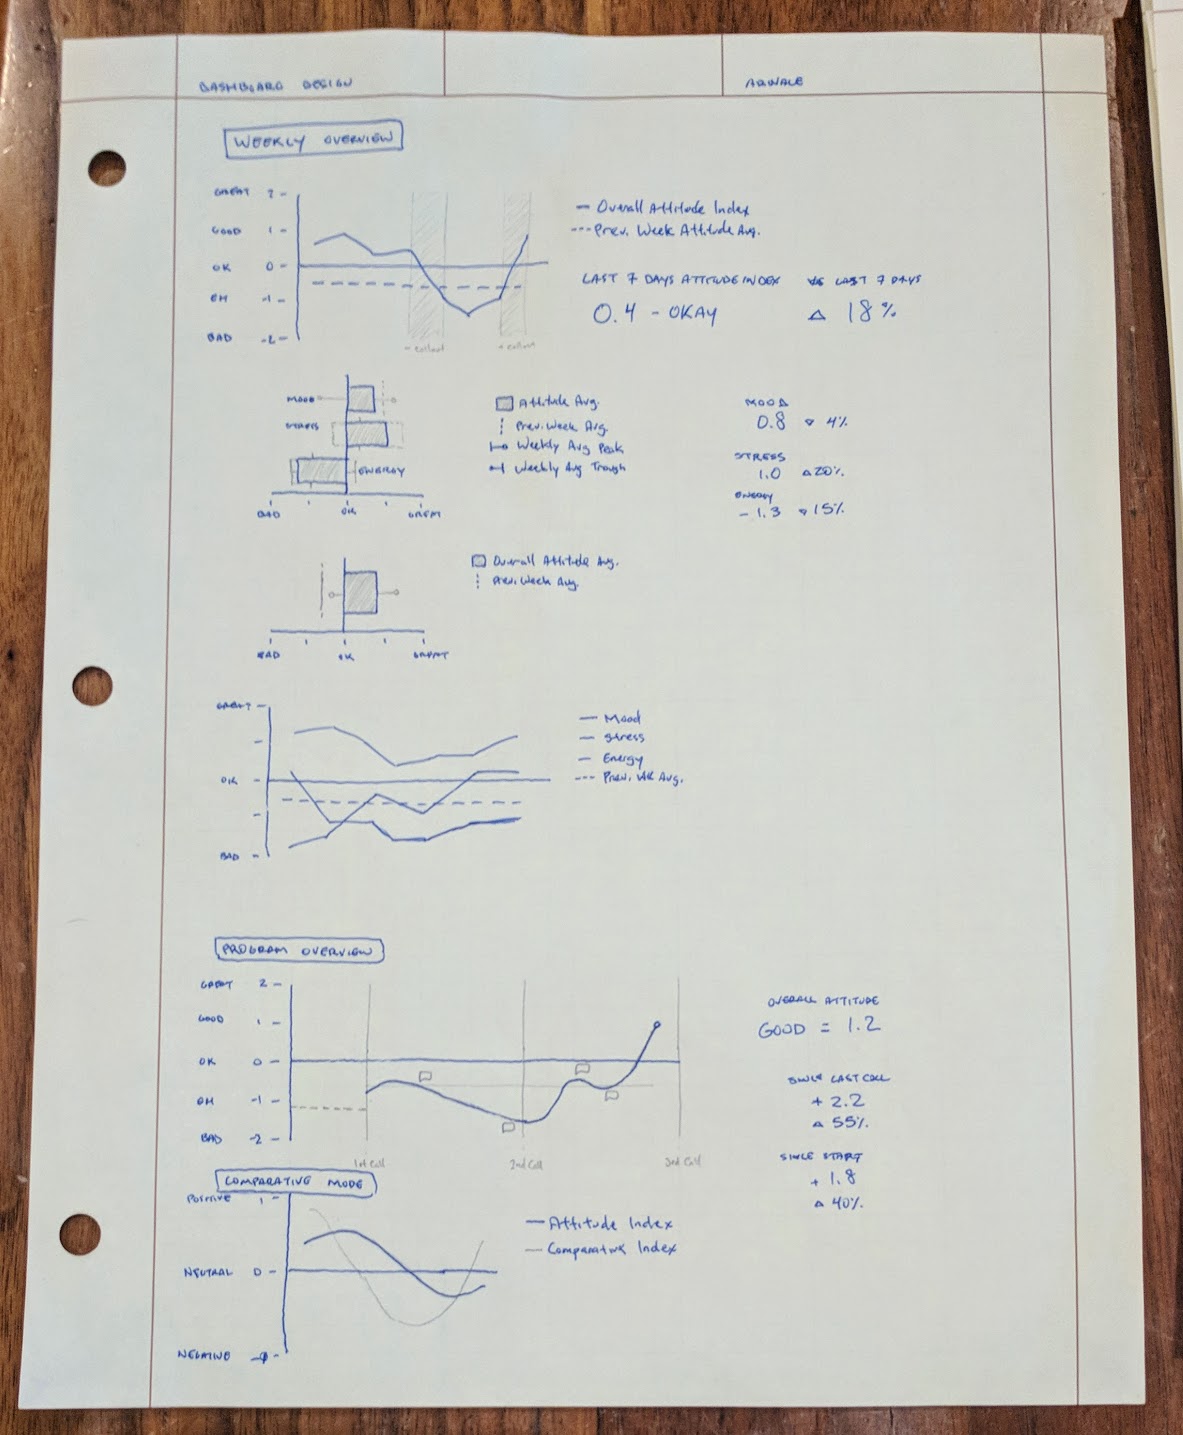 DASHBOARD DESIGN
WEEKLY OVERVIEW
GREAT 2
GOOD 1
OK 0
EH -1
BAD -2
Overall Attitude Index
Prev. Week Attitude Avg.
LAST 7 DAYS ATTITUDE INDEX VS LAST 7 DAYS
0.4 - OKAY △ 18%
MOOD
STRESS
ENERGY
BAD OK GREAT
Attitude Avg.
Prev. Week Avg.
Weekly Avg Peak
Weekly Avg Trough
MOOD
0.8 ▽ 4%
STRESS
1.0 △ 20%
ENERGY
-1.3 ▽ 15%
Overall Attitude Avg.
Prev. Week Avg.
BAD OK GREAT
GREAT
OK
BAD
Mood
Stress
Energy
Prev. Wk Avg.
PROGRAM OVERVIEW
GREAT 2
GOOD 1
OK 0
EH -1
BAD -2
1st Call 2nd Call 3rd Call
OVERALL ATTITUDE
GOOD = 1.2
SINCE LAST CALL
+ 2.2
△ 55%
SINCE START
+ 1.8
△ 40%
COMPARATIVE MODE
POSITIVE 1
NEUTRAL 0
NEGATIVE
Attitude Index
Comparative Index